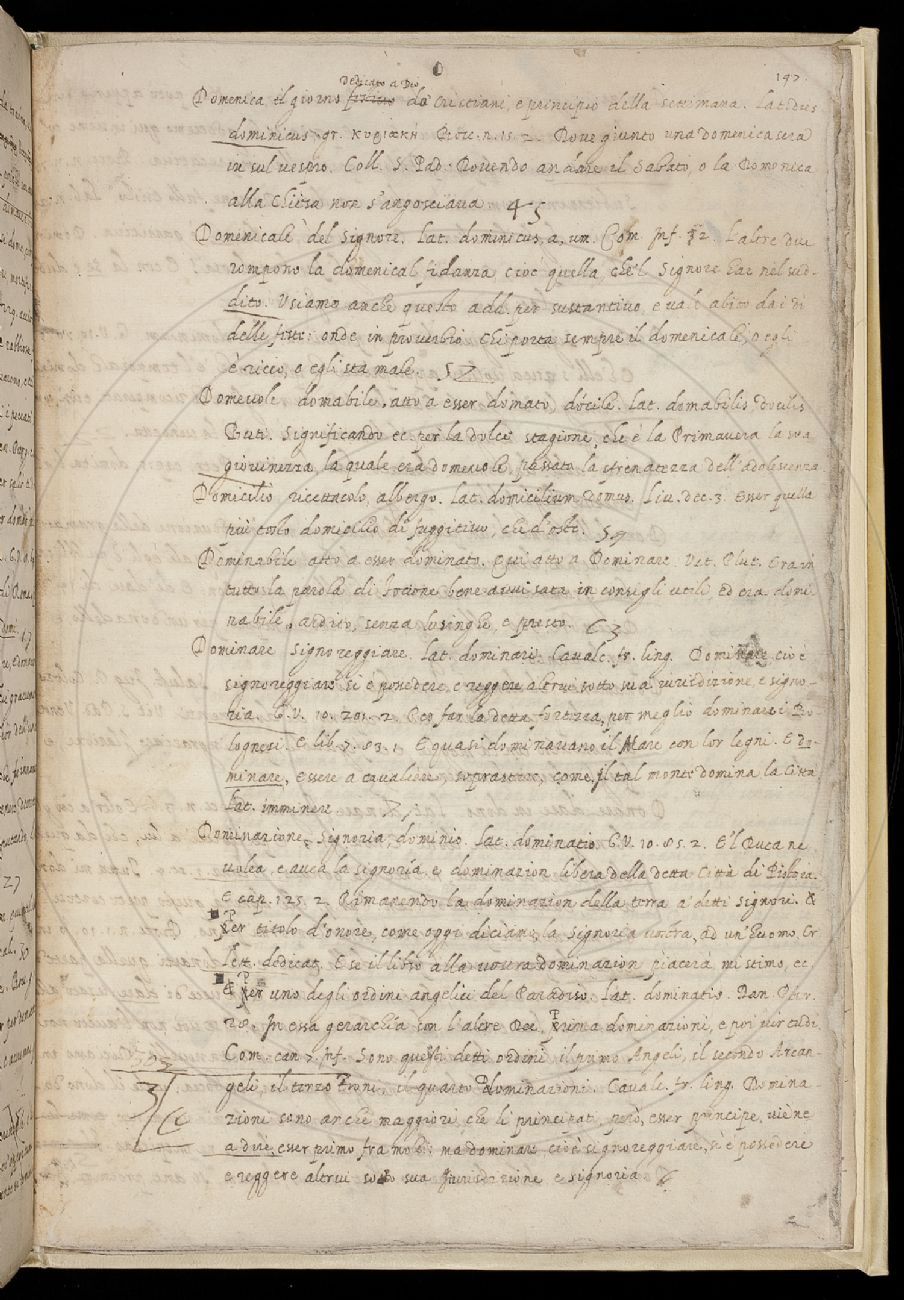 147.
Dedicato a Dio
Domenica il giorno festiuo de Cristiani, e principio della settimana. Lat. dies
dominicus. gr. κυριακὴ Bocc. n. 15. 2. Doue giunto una domenica sera
in sul vespro. Coll. S. Pad. Douendo andare il Sabato, o la Domenica
alla Chiesa non s'angosciaua 45
Domenicale del Signore. Lat. dominicus, a, um. Com. Inf. 12. L'altre due
rompono la domenical fidanza cioè quella, che'l Signore hae nel sud-
dito. Usiamo anche questo add. per sustantiuo, e vale abito da i dì
delle feste: onde in prouerbio chi porta sempre il domenicale, o egli
è ricco, o egli sta male. 57
Domeuole domabile, atto a esser domato, docile. lat. domabilis docilis
Buti. Significando ec. per la dolce stagione, che è la Primauera la sua
giouinezza, la quale era domeuole, passata la sfrenatezza dell'adolescenza
Domicilio ricettacolo, albergo. Lat. domicilium, domus. Liu. dec. 3. Esser quella
più tosto domicilio di fuggitiuo, che d'oste.
Dominabile atto a esser dominato. E qui atto a Dominare. Vit. Plut. Era in
tutto la parola di focione bene auuisata in consigli utili, ed era domi-
nabile, ardito, senza lusinghe, e presto. C3
Dominare Signoreggiare. Lat. dominari. Caualc. fr. ling. Dominare cioè
signoreggiare si è possedere, e reggere altrui sotto sua iuridizione, e signo-
ria. G. V. 10. 201. 2. Fece far la detta fortezza, per meglio dominare i Bo-
lognesi. E lib. 7. 83. 1. E quasi dominauano il Mare con lor legni. E Do-
minare, essere a caualiere, soprastare, come, il tal monte domina la Città
Lat. imminere
Dominazione, Signoria, dominio. Lat. dominatio. G. V. 10. 85. 2. E'l Duca ne
uolea, e auea la signoria, e dominazion libera della detta Città di Pistoia.
E cap. 125. 2. Rimanendo la dominazion della terra a' detti signori. &
Per titolo d'onore, come oggi diciamo, la Signoria uostra, ad un' huomo. Gr
lett. dedicat. E se il libro alla uostra dominazion piacerà mi stimo, ec.
& Per uno degli ordini angelici del Paradiso. Lat. dominatio. Dan. Par.
28. In essa gerarchia con l'altre Dee. Prima dominazioni, e poi virtudi.
Com. can. 7. Inf. Sono questi detti ordini il primo Angeli, il secondo Arcan-
geli, il terzo Troni, il quarto Dominazioni. Caualc. fr. ling. Domina-
zioni sono anche maggiori, che li principati, però, esser principe, uiene
a dire, esser primo fra molti: ma dominare cioè signoreggiare, si è possedere
e reggere altrui sotto sua Iurisdizione e signoria